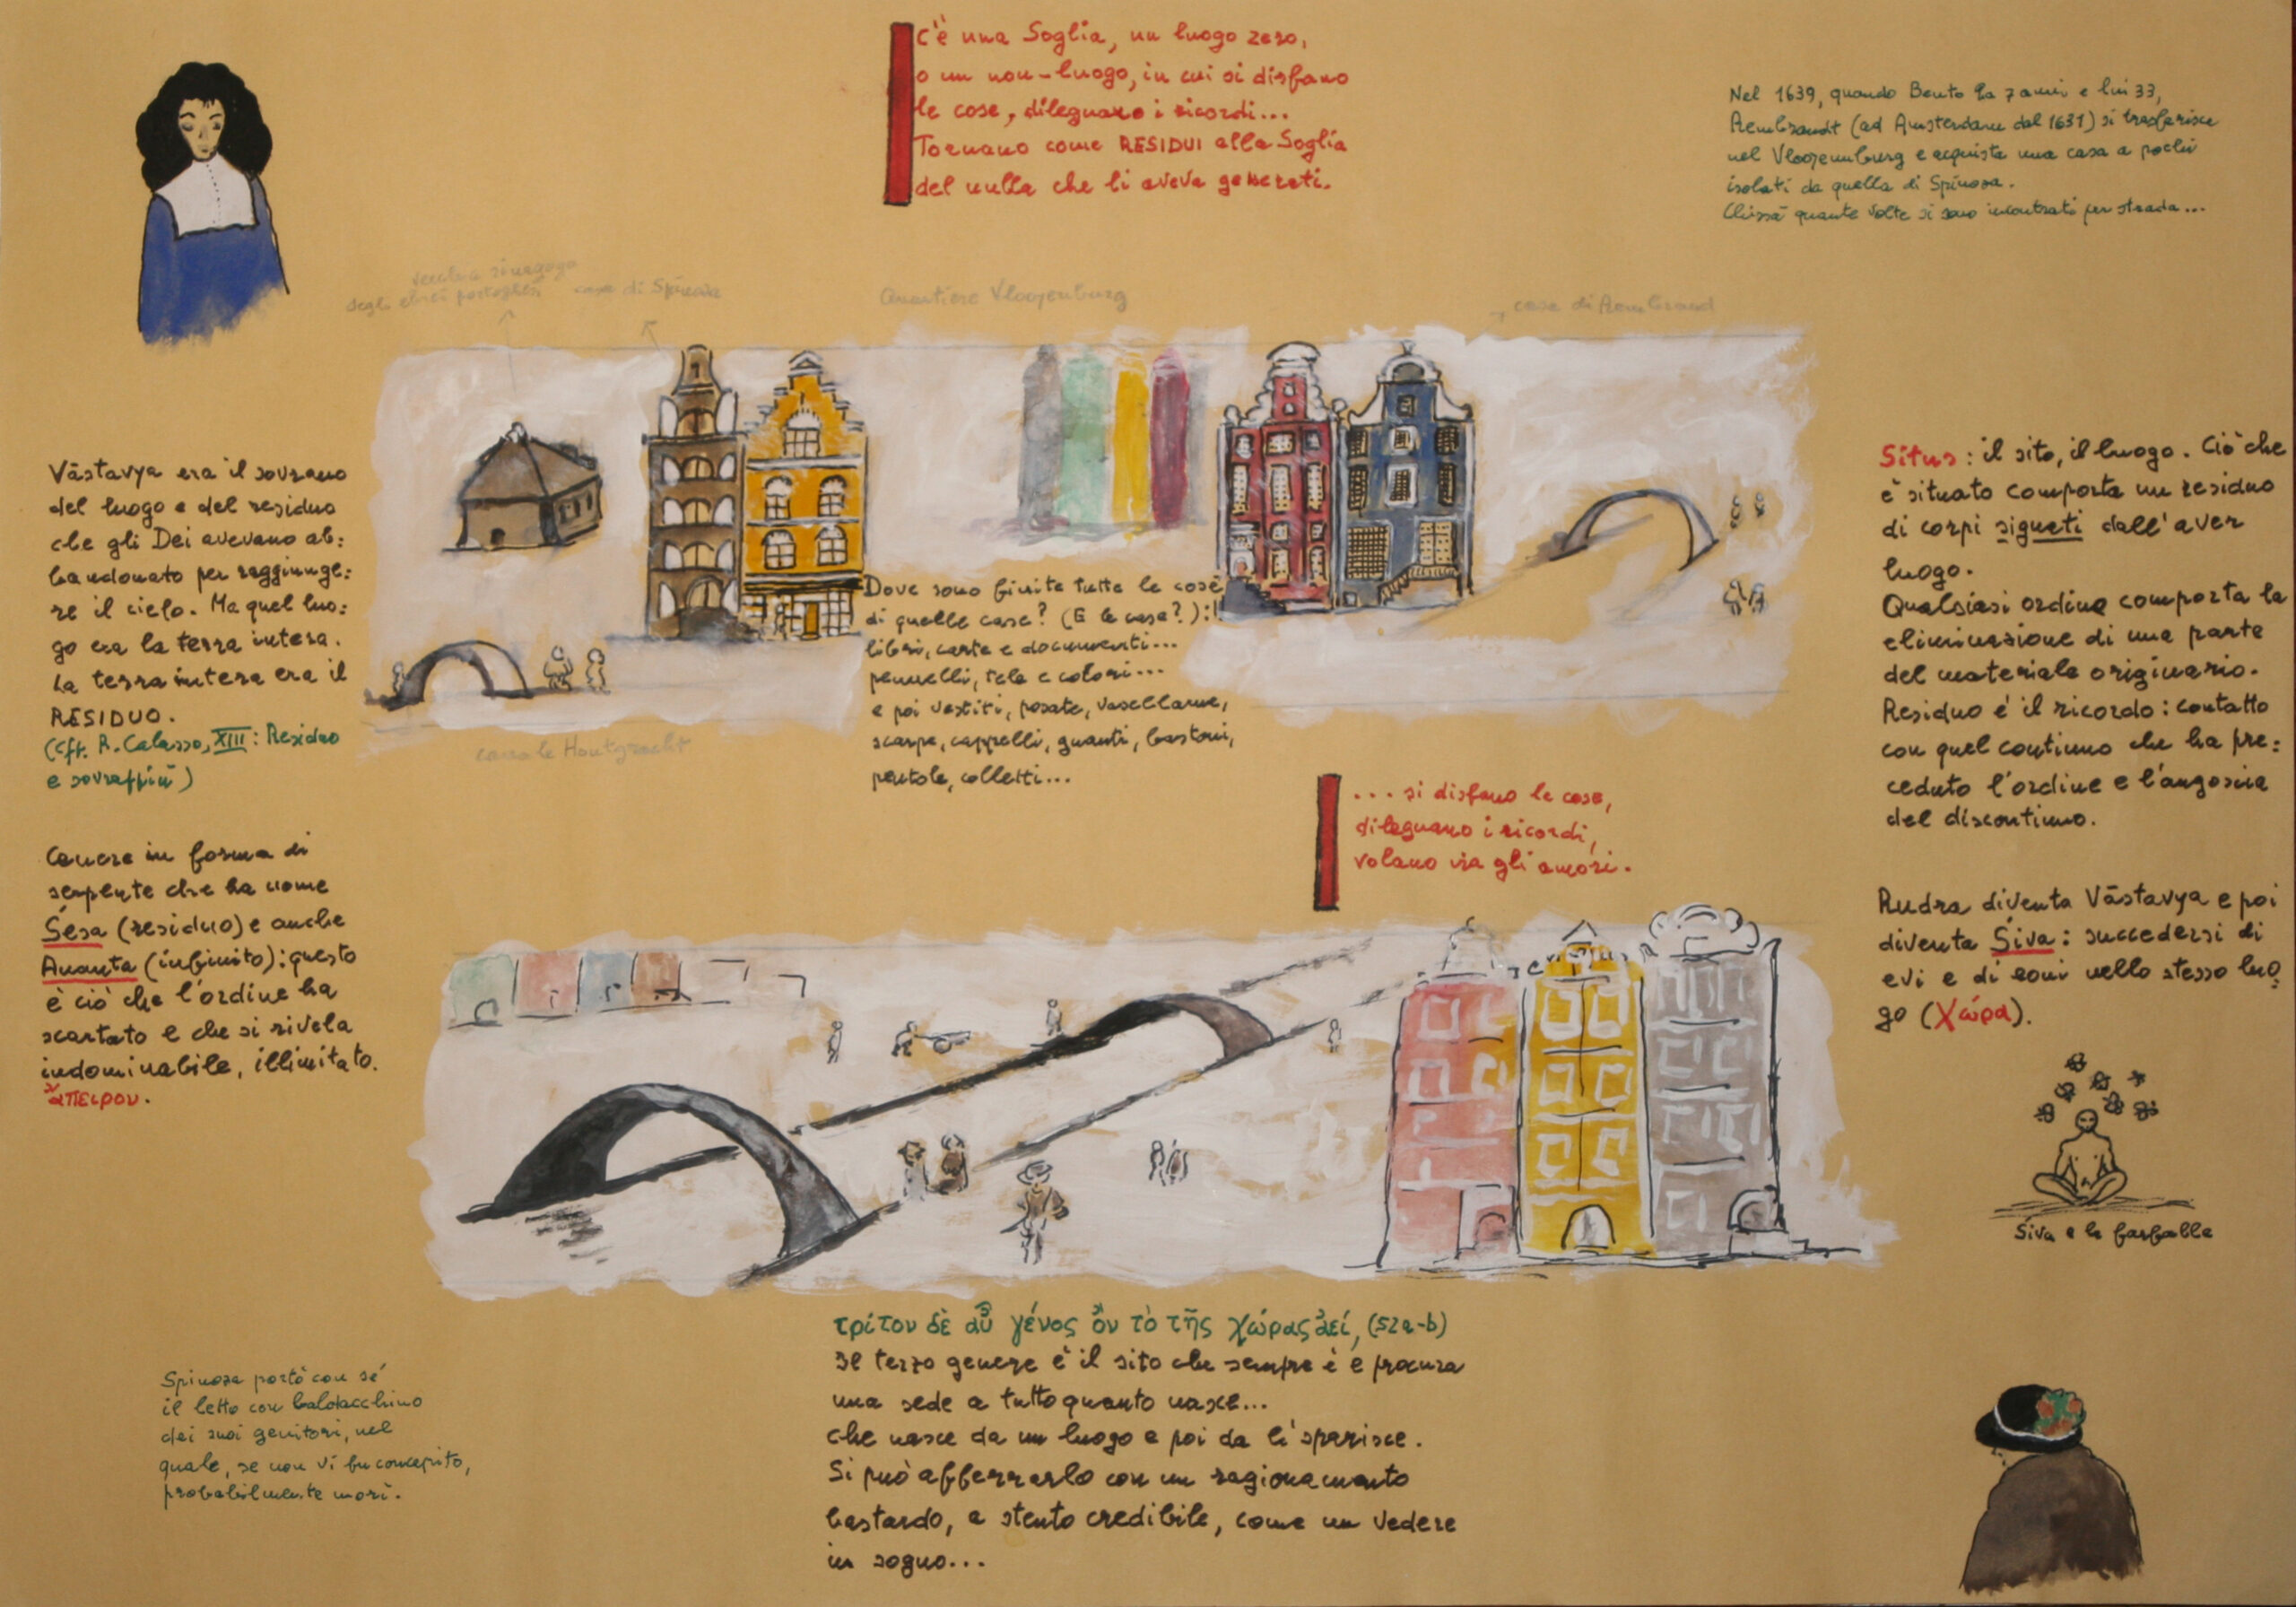 C'è una Soglia, un luogo zero,
o un non-luogo, in cui si disfano
le cose, dileguano i ricordi...
Tornano come RESIDUI alla Soglia
del nulla che li aveva generati.
Nel 1639, quando Bento ha 7 anni e lui 33,
Rembrandt (ad Amsterdam dal 1631) si trasferisce
nel Vlooyenburg e acquista una casa a pochi
isolati da quella di Spinosa.
Chissà quante volte si sono incontrati per strada...
vecchia sinagoga
degli ebrei portoghesi
casa di Spinoza
Quartiere Vlooyenburg
casa di Rembrand
Vāstavya era il sovrano
del luogo e del residuo
che gli Dei avevano ab:
bandonato per raggiunge:
re il cielo. Ma quel luo:
go era la terra intera.
La terra intera era il
RESIDUO.
(cfr. R. Calasso, XIII: Residuo
e sovrappiù)
Cenere in forma di
serpente che ha nome
Śesa (residuo) e anche
Ananta (infinito): questo
è ciò che l'ordine ha
scartato e che si rivela
indominabile, illimitato.
ἄπειρον.
canale Houtgracht
Dove sono finite tutte le cose
di quelle case? (E le case?):!
libri, carte e documenti...
pennelli, tele e colori...
e poi vestiti, posate, vasellame,
scarpe, cappelli, guanti, bastoni,
pentole, colletti...
... si disfano le cose,
dileguano i ricordi,
volano via gli amori.
Situs: il sito, il luogo. Ciò che
è situato comporta un residuo
di corpi signati dall'aver
luogo.
Qualsiasi ordine comporta la
eliminazione di una parte
del materiale originario.
Residuo è il ricordo: contatto
con quel continuo che ha pre:
ceduto l'ordine e l'angoscia
del discontinuo.
Rudra diventa Vāstavya e poi
diventa Śiva: succedersi di
evi e di eoni nello stesso luo
go (Χώρα).
Śiva e le farfalle
τρίτον δὲ αὖ γένος ὂν τὸ τῆς χώρας ἀεί, (52a-b)
Il terzo genere è il sito che sempre è e procura
una sede a tutto quanto nasce...
che nasce da un luogo e poi da lì sparisce.
Si può afferrarlo con un ragionamento
bastardo, a stento credibile, come un vedere
in sogno...
Spinoza portò con sé
il letto con baldacchino
dei suoi genitori, nel
quale, se non vi fu concepito,
probabilmente morì.